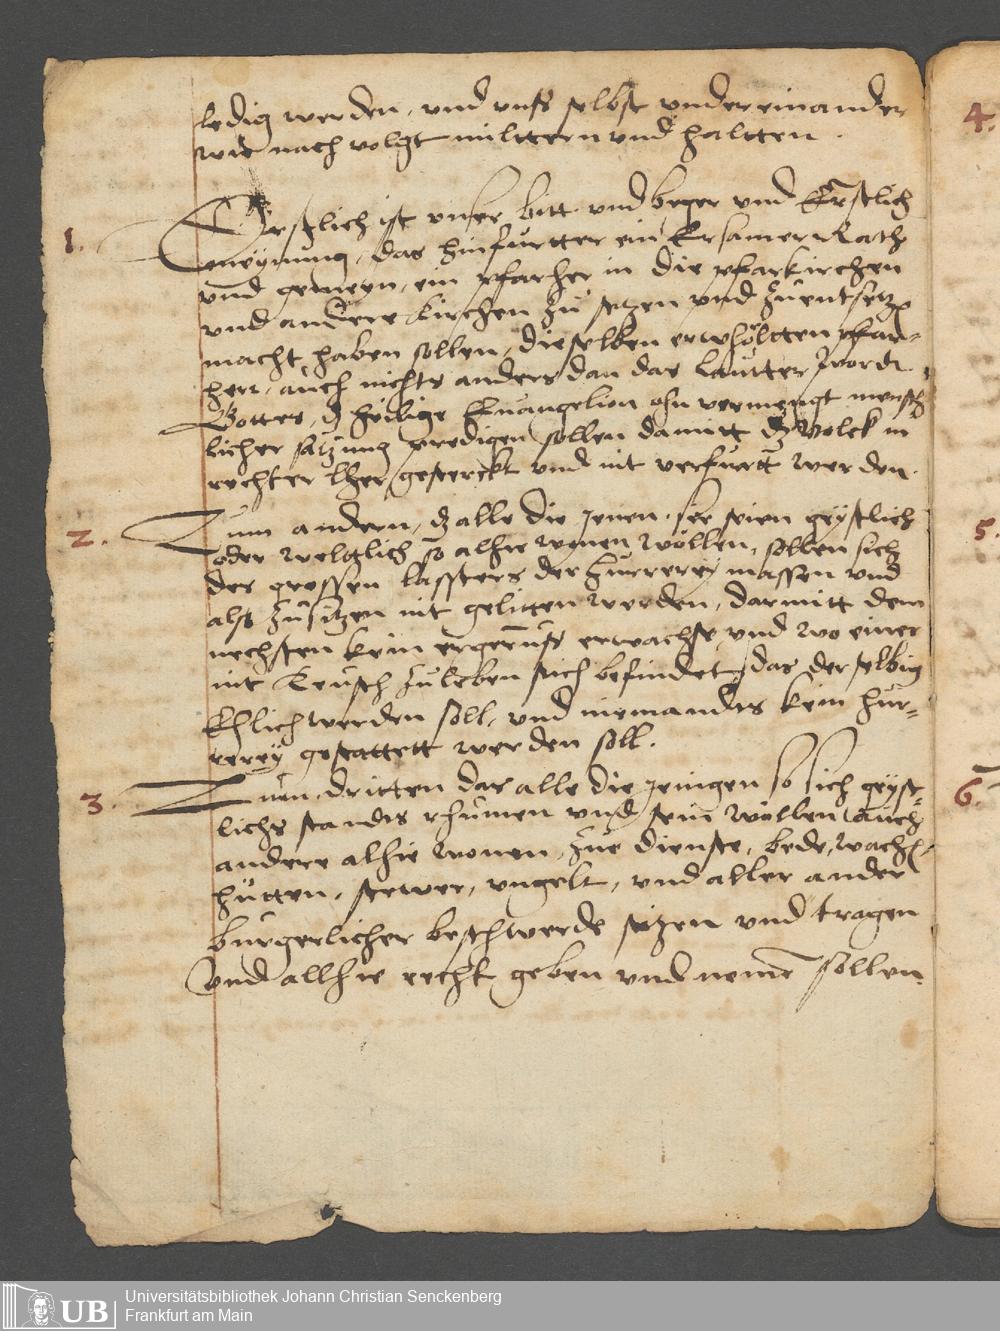 ledig werden, und unß selbst undereinander
wie nach volgt miltern und haltten.
1. Erstlich ist unser bitt und beger und Ernstlich
meynung, das hinfurtter ein Ersamer Rath
und gemeyn, ein pfarher in die pfarkirchen
und andere Kirchen zu setzen und zu entsetzen
macht haben sollen, dieselben erwhöltten pfar=
herr, auch nichts anders dan das lautter wordt
Gottes, dz heilige Euangelion ohn vermengt mensch
licher satzung predigen sollen damitt dz volck in
rechter lher gesterckt und nit verfurtt werden.
2. Zum andern, dz alle die jenen, sie seien geystlich
oder weltlich so alhie wonen wöllen, sollen sich
des grossen lassters der hurrerey massen und
alß zu sitzen nit gelitten werden, darmitt dem
nechsten kein ergernuß erwachse, und wo einer
nit Keusch zu leben sich befindet, das derselbig
Ehlich werden soll, und niemandts kein hur=
rerey gestattett werden soll.
3. Zum dritten das alle die jenigen so sich geyst=
lichs standts rhumen und sein wöllen auch
andere alhie wonen, zue dienste, bede, wach,
hutten, stewer, ungelt, und aller ander
burgerlicher beschwerde sitzen und tragen
und allhie recht geben und neme sollen.
4.
5.
6.
UB
Universitätsbibliothek Johann Christian Senckenberg
Frankfurt am Main